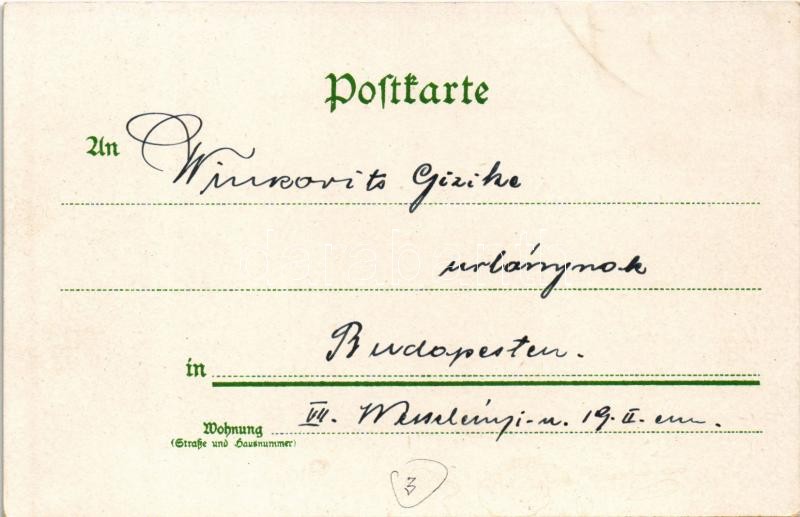 Postkarte
An Winkovits Gizike
urlánynak
in Budapesten.
Wohnung VII. Wesselényi-u. 19. II. em.
(Straße und Hausnummer)
3